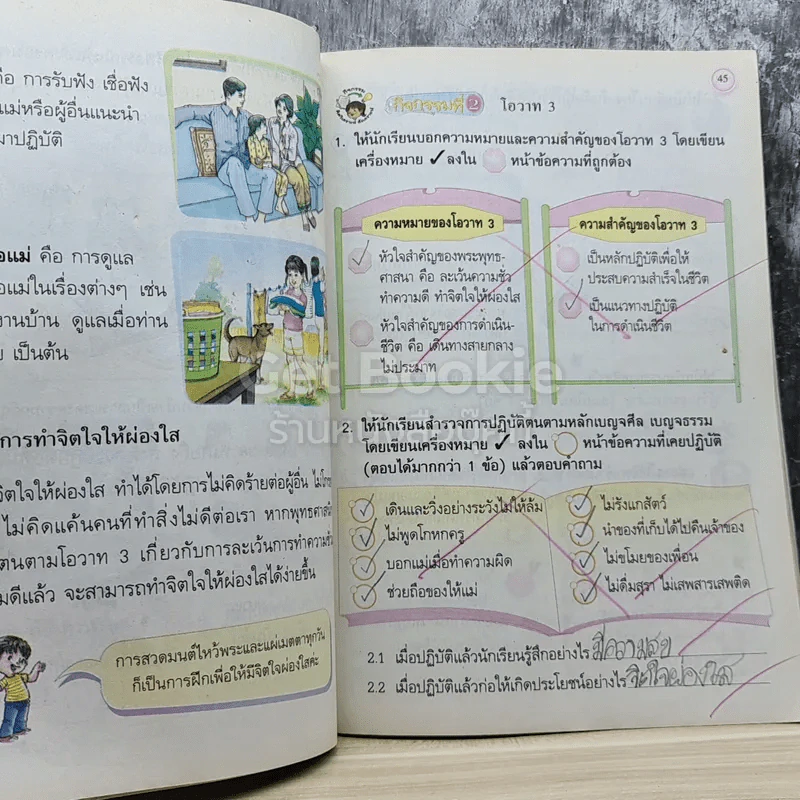 คือ การรับฟัง เชื่อฟัง
แม่หรือผู้อื่นแนะนำ
มาปฏิบัติ
แม่ คือ การดูแล
แม่ในเรื่องต่างๆ เช่น
งานบ้าน ดูแลเมื่อท่าน
เป็นต้น
การทำจิตใจให้ผ่องใส
จิตใจให้ผ่องใส ทำได้โดยการไม่คิดร้ายต่อผู้อื่น
ไม่คิดแค้นคนที่ทำสิ่งไม่ดีต่อเรา หากพุทธศาสนิ
ตนตามโอวาท 3 เกี่ยวกับการละเว้นการทำความชั่ว
มดีแล้ว จะสามารถทำจิตใจให้ผ่องใสได้ง่ายขึ้น
การสวดมนต์ไหว้พระและแผ่เมตตาทุกวัน
ก็เป็นการฝึกเพื่อให้มีจิตใจผ่องใสคะ
45
กิจกรรมที่ 2 โอวาท 3
1. ให้นักเรียนบอกความหมายและความสำคัญของโอวาท 3 โดยเขียน
เครื่องหมาย ✓ ลงใน หน้าข้อความที่ถูกต้อง
ความหมายของโอวาท 3
หัวใจสำคัญของพระพุทธ-
ศาสนา คือ ละเว้นความชั่ว
ทำความดี ทำจิตใจให้ผ่องใส
หัวใจสำคัญของการดำเนิน-
ชีวิต คือ เดินทางสายกลาง
ไม่ประมาท
ความสำคัญของโอวาท 3
เป็นหลักปฏิบัติเพื่อให้
ประสบความสำเร็จในชีวิต
เป็นแนวทางปฏิบัติ
ในการดำเนินชีวิต
Get Bookie
ร้านหนังสือบุ๊คกี้
2. ให้นักเรียนสำรวจการปฏิบัติตนตามหลักเบญจศีล เบญจธรรม
โดยเขียนเครื่องหมาย ✓ ลงใน หน้าข้อความที่เคยปฏิบัติ
(ตอบได้มากกว่า 1 ข้อ) แล้วตอบคำถาม
เดินและวิ่งอย่างระวังไม่ให้ล้ม
ไม่พูดโกหกครู
บอกแม่เมื่อทำความผิด
ช่วยถือของให้แม่
ไม่รังแกสัตว์
นำของที่เก็บได้ไปคืนเจ้าของ
ไม่ขโมยของเพื่อน
ไม่ดื่มสุรา ไม่เสพสารเสพติด
2.1 เมื่อปฏิบัติแล้วนักเรียนรู้สึกอย่างไร มีความสุข
2.2 เมื่อปฏิบัติแล้วก่อให้เกิดประโยชน์อย่างไร จิตใจผ่องใส